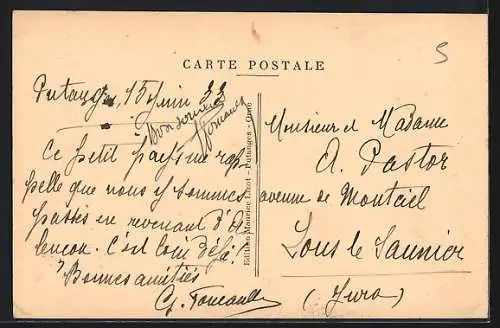 CARTE POSTALE
5
Putanges, 15 Juin 33
Bon souvenir
Foucault
Ce petit pays me rap-
pelle que nous y sommes
passés en revenant d'A-
lençon. C'est loin déjà!
Bonnes amitiés
G. Foucault
Edition Maurice Lizot - Putanges - Orne
Monsieur et Madame
A. Pastor
avenue de Montciel
Lons le Saunier
(Jura)